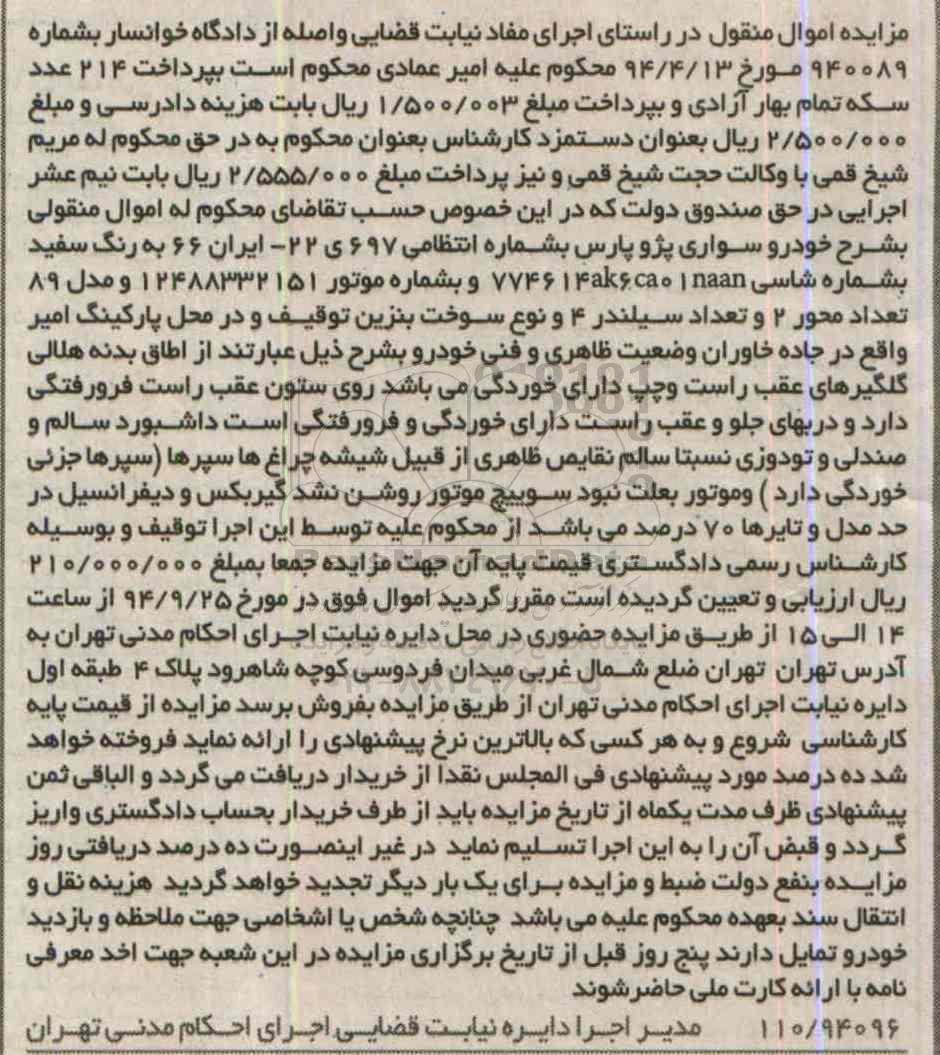 مزایده اموال منقول در راستای اجرای مفاد نیابت قضایی واصله از دادگاه خوانسار بشماره
۹۴۰۰۸۹ مـورخ ۹۴/۴/۱۳ محکوم علیه امیر عمادی محکوم اسـت بپرداخت ۲۱۴ عدد
سـکه تمام بهار آزادی و بپرداخت مبلغ ۱/۵۰۰/۰۰۳ ریال بابت هزینه دادرسـی و مبلغ
۲/۵۰۰/۰۰۰ ریال بعنوان دسـتمزد کارشناس بعنوان محکوم به در حق محکوم له مریم
شیخ قمی با وکالت حجت شیخ قمی و نیز پرداخت مبلغ ۲/۵۵۵/۰۰۰ ریال بابت نیم عشر
اجرایی در حق صندوق دولت که در این خصوص حسـب تقاضای محکوم له اموال منقولی
بشـرح خودرو سـواری پژو پارس بشـماره انتظامی ۶۹۷ ی ۲۲- ایران ۶۶ به رنگ سفید
بشـماره شاسی ۷۷۴۶۱۴ak۶ca۰۱naan و بشماره موتور ۱۲۴۸۸۳۳۲۱۵۱ و مدل ۸۹
تعداد محور ۲ و تعداد سـیلندر ۴ و نوع سـوخت بنزین توقیـف و در محل پارکینگ امیر
واقع در جاده خاوران وضعیت ظاهری و فنی خودرو بشرح ذیل عبارتند از اطاق بدنه هلالی
گلگیرهای عقب راست وچپ دارای خوردگی می باشد روی ستون عقب راست فرورفتگی
دارد و دربهای جلو و عقب راسـت دارای خوردگی و فرورفتگی اسـت داشـبورد سـالم و
صندلی و تودوزی نسبتا سالم نقایص ظاهری از قبیل شیشه چراغ ها سپرها (سپرها جزئی
خوردگی دارد ) وموتور بعلت نبود سـوییچ موتور روشـن نشد گیربکس و دیفرانسیل در
حد مدل و تایرها ۷۰ درصد می باشـد از محکوم علیه توسـط این اجرا توقیف و بوسـیله
کارشـناس رسمی دادگسـتری قیمت پایه آن جهت مزایده جمعا بمبلغ ۲۱۰/۰۰۰/۰۰۰
ریال ارزیابی و تعیین گردیده است مقرر گردید اموال فوق در مورخ ۹۴/۹/۲۵ از ساعت
۱۴ الـی ۱۵ از طریـق مزایده حضوری در محل دایره نیابت اجـرای احکام مدنی تهران به
آدرس تهران تهران ضلع شـمال غربی میدان فردوسی کوچه شاهرود پلاک ۴ طبقه اول
دایره نیابت اجرای احکام مدنی تهران از طریق مزایده بفروش برسد مزایده از قیمت پایه
کارشناسی شروع و به هر کسی که بالاترین نرخ پیشنهادی را ارائه نماید فروخته خواهد
شد ده درصد مورد پیشنهادی فی المجلس نقدا از خریدار دریافت می گردد و الباقی ثمن
پیشنهادی ظرف مدت یکماه از تاریخ مزایده باید از طرف خریدار بحساب دادگستری واریز
گـردد و قبض آن را به این اجرا تسـلیم نماید در غیر اینصـورت ده درصد دریافتی روز
مزایـده بنفع دولت ضبط و مزایده بـرای یک بار دیگر تجدید خواهد گردید هزینه نقل و
انتقال سند بعهده محکوم علیه می باشد چنانچه شخص یا اشخاصی جهت ملاحظه و بازدید
خودرو تمایل دارند پنج روز قبل از تاریخ برگزاری مزایده در این شعبه جهت اخد معرفی
نامه با ارائه کارت ملی حاضرشوند
۱۱۰/۹۴۰۹۶ مدیـر اجـرا دایـره نیابـت قضایـی اجـرای احـکام مدنـی تهـران